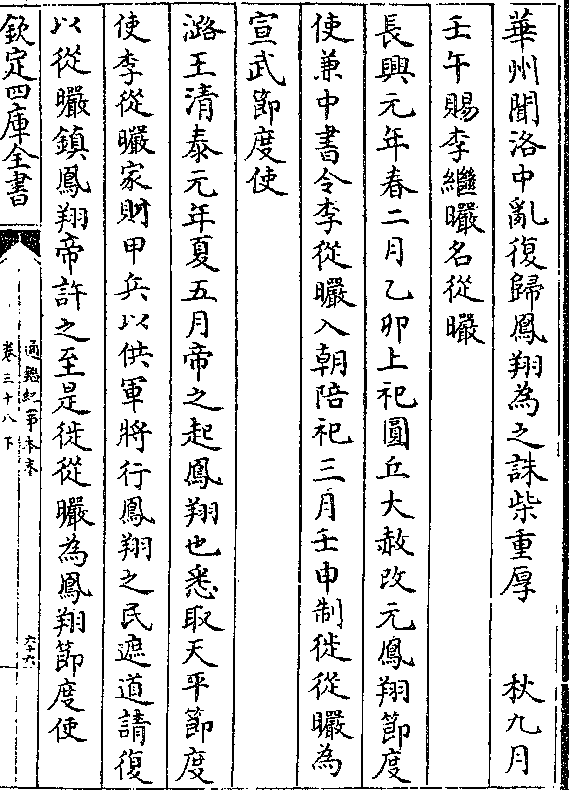 華州聞洛中亂復歸鳳翔為之誅柴重厚　秋九月
壬午賜李繼曮名從曮
長興元年春二月乙卯上祀圓丘大赦改元鳳翔節度
使兼中書令李從曮入朝陪祀三月壬申制徙從曮為
宣武節度使
潞王清泰元年夏五月帝之起鳳翔也悉取天平節度
使李從曮家財甲兵以供軍將行鳳翔之民遮道請復
以從曮鎮鳳翔帝許之至是徙從曮為鳳翔節度使
欽定四庫全書
通鑑紀事本末
卷三十八下
六十六